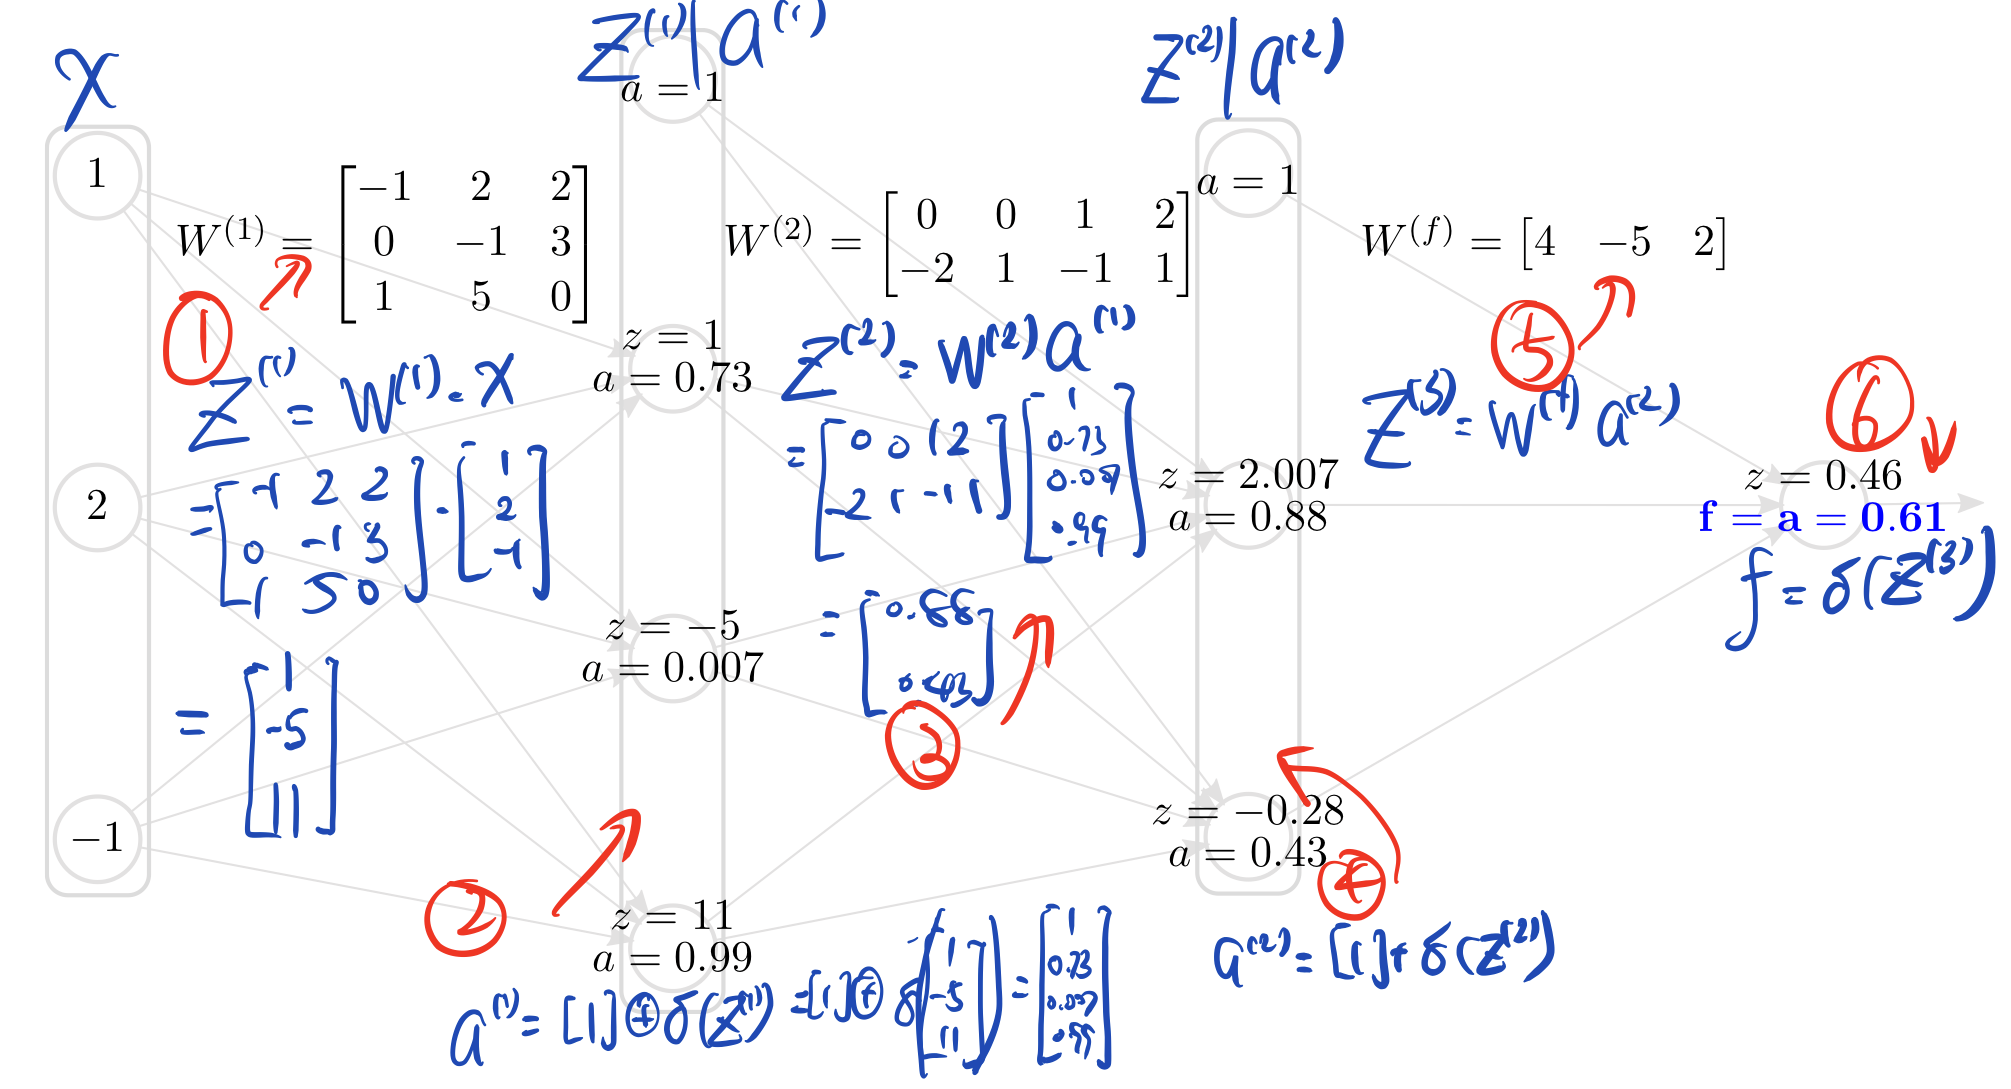 x
z⁽¹⁾ | a⁽¹⁾
z⁽²⁾ | a⁽²⁾
1
2
−1
W⁽¹⁾ = [−1 2 2
0 −1 3
1 5 0]
①
z⁽¹⁾ = W⁽¹⁾ · x
= [-1 2 2
0 -1 3
1 5 0] · [1
2
-1]
= [1
-5
11]
②
a = 1
z = 1
a = 0.73
z = −5
a = 0.007
z = 11
a = 0.99
a⁽¹⁾ = [1] ⊕ δ(z⁽¹⁾) = [1] ⊕ δ([1
-5
11]) = [1
0.73
0.007
0.99]
W⁽²⁾ = [0 0 1 2
−2 1 −1 1]
z⁽²⁾ = W⁽²⁾ a⁽¹⁾
= [0 0 1 2
-2 1 -1 1] [1
0.73
0.007
0.99]
= [0.88
0.403]
③
a = 1
z = 2.007
a = 0.88
z = −0.28
a = 0.43
④
a⁽²⁾ = [1] + δ(z⁽²⁾)
W⁽ᶠ⁾ = [4 −5 2]
⑤
z⁽³⁾ = W⁽ᶠ⁾ a⁽²⁾
⑥
z = 0.46
f = a = 0.61
f = δ(z⁽³⁾)